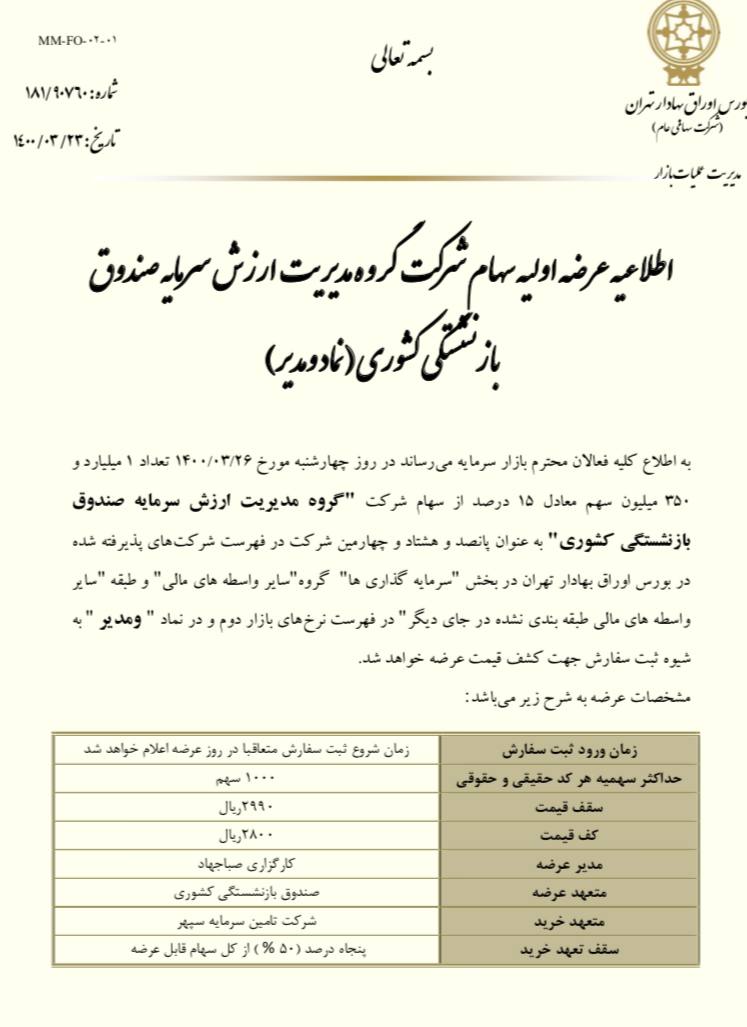 MM-FO-۰۲-۰۱
بسمه تعالی
شماره: ۱۸۱/۹۰۷۶۰
تاریخ: ۱۴۰۰/۰۳/۲۳
بورس اوراق بهادار تهران
(شرکت سهامی عام)
مدیریت عملیات بازار
اطلاعیه عرضه اولیه سهام شرکت گروه مدیریت ارزش سرمایه صندوق
بازنشستگی کشوری (نماد ومدیر)
به اطلاع کلیه فعالان محترم بازار سرمایه می‌رساند در روز چهارشنبه مورخ ۱۴۰۰/۰۳/۲۶ تعداد ۱ میلیارد و
۳۵۰ میلیون سهم معادل ۱۵ درصد از سهام شرکت "گروه مدیریت ارزش سرمایه صندوق
بازنشستگی کشوری" به عنوان پانصد و هشتاد و چهارمین شرکت در فهرست شرکت‌های پذیرفته شده
در بورس اوراق بهادار تهران در بخش "سرمایه گذاری ها" گروه"سایر واسطه های مالی" و طبقه "سایر
واسطه های مالی طبقه بندی نشده در جای دیگر" در فهرست نرخ‌های بازار دوم و در نماد " ومدیر " به
شیوه ثبت سفارش جهت کشف قیمت عرضه خواهد شد.
مشخصات عرضه به شرح زیر می‌باشد:
زمان ورود ثبت سفارش زمان شروع ثبت سفارش متعاقبا در روز عرضه اعلام خواهد شد
حداکثر سهمیه هر کد حقیقی و حقوقی ۱۰۰۰ سهم
سقف قیمت ۲۹۹۰ریال
کف قیمت ۲۸۰۰ریال
مدیر عرضه کارگزاری صباجهاد
متعهد عرضه صندوق بازنشستگی کشوری
متعهد خرید شرکت تامین سرمایه سپهر
سقف تعهد خرید پنجاه درصد (۵۰ %) از کل سهام قابل عرضه